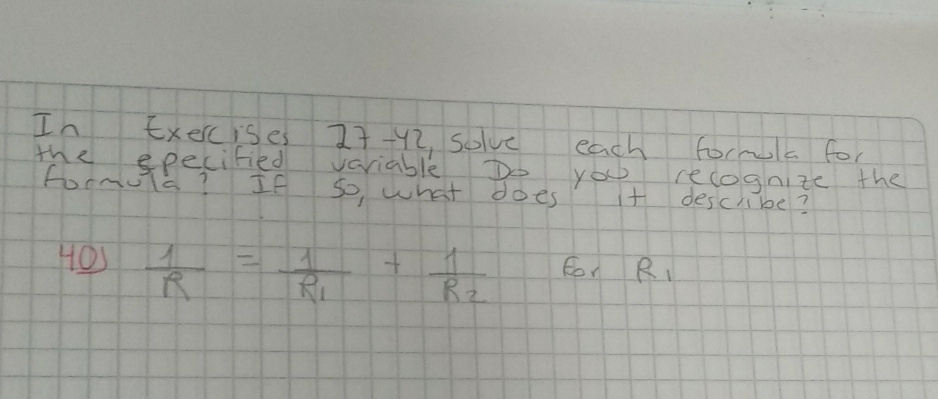 In Exercises 27-42, solve each formula for
the epecified variable Do you recognize the
formula? If so, what does it describe?
40) 1/R = 1/R₁ + 1/R₂ for R₁